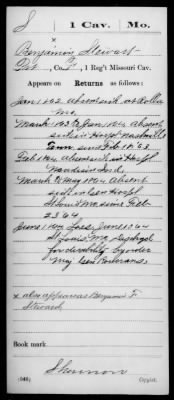 S | 1 Cav. | Mo.
Benjamin Stewart
Pvt, Co. F, 1 Reg't Missouri Cav.
Appears on
Returns as follows:
Jan 1862 Absent sick at Rolla
Mo.
March '63 to Jan 1864 Absent
sick in Hospl Nashville
Tenn since Feb 1" 63
Feb 1864 Absent sick in Hospl
Madison Ind.
March to May 1864 Absent
sick in Genl Hospl
St Louis Mo since Feb
23 64
June 1864 Loss, June 64
St Louis, Mo Dischgd
for disability by order
Maj Gen Rosecrans.
x also appears as Benjamin F.
Steward
Book mark:
Shannon
(546)
Copyist.